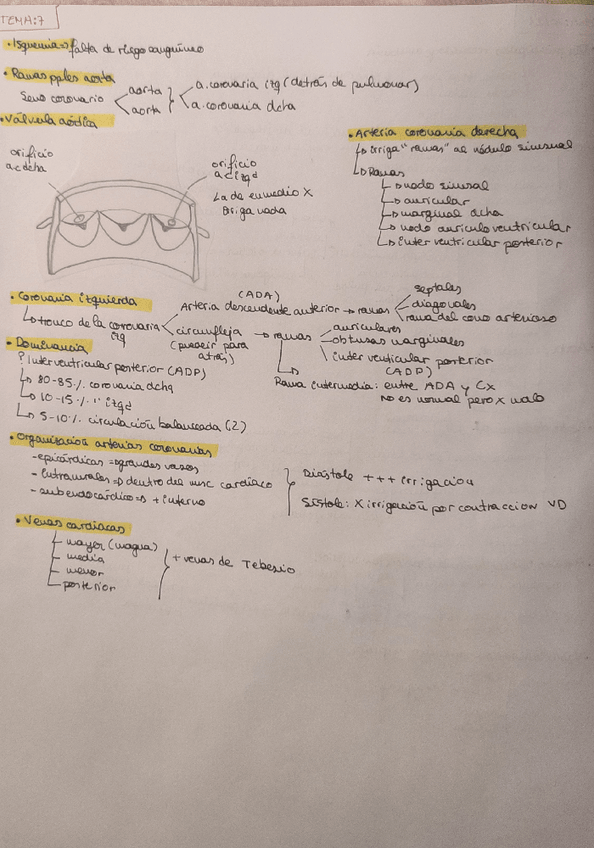 TEMA:7
• Isquemia => falta de riego sanguíneo
• Ramas pples aorta
Seno coronario
aorta
aorta
a. coronaria izq (detrás de pulmonar)
a. coronaria dcha
• Válvula aórtica
orificio
a c dcha
orificio
a c izqd
La de enmedio X
irriga nada
Arteria coronaria derecha
irriga "ramas" al nódulo sinusal
Ramas
nodo sinusal
auricular
marginal dcha
nodo auriculo ventricular
inter ventricular posterior
• Coronaria izquierda
tronco de la coronaria
izq
(ADA)
Arteria descendente anterior → ramas
septales
diagonales
rama del cono arterioso
circunfleja → ramas
(puede ir para
atrás)
auriculares
obtusas marginales
inter ventricular posterior
(ADP)
Rama intermedia: entre ADA y Cx
No es normal pero X malo
• Dominancia
? Interventricular posterior (ADP)
80-85% coronaria dcha
10-15% " izqd
5-10% circulación balanceada (2)
• Organización arterias coronarias
- epicárdicas => grandes vasos
- intramurales => dentro del musc cardíaco
- subendocárdico => + interno
Diástole +++ irrigación
Sístole: X irrigación por contraccion VD
• Venas cardíacas
mayor (magna)
media
menor
posterior
+ venas de Tebesio